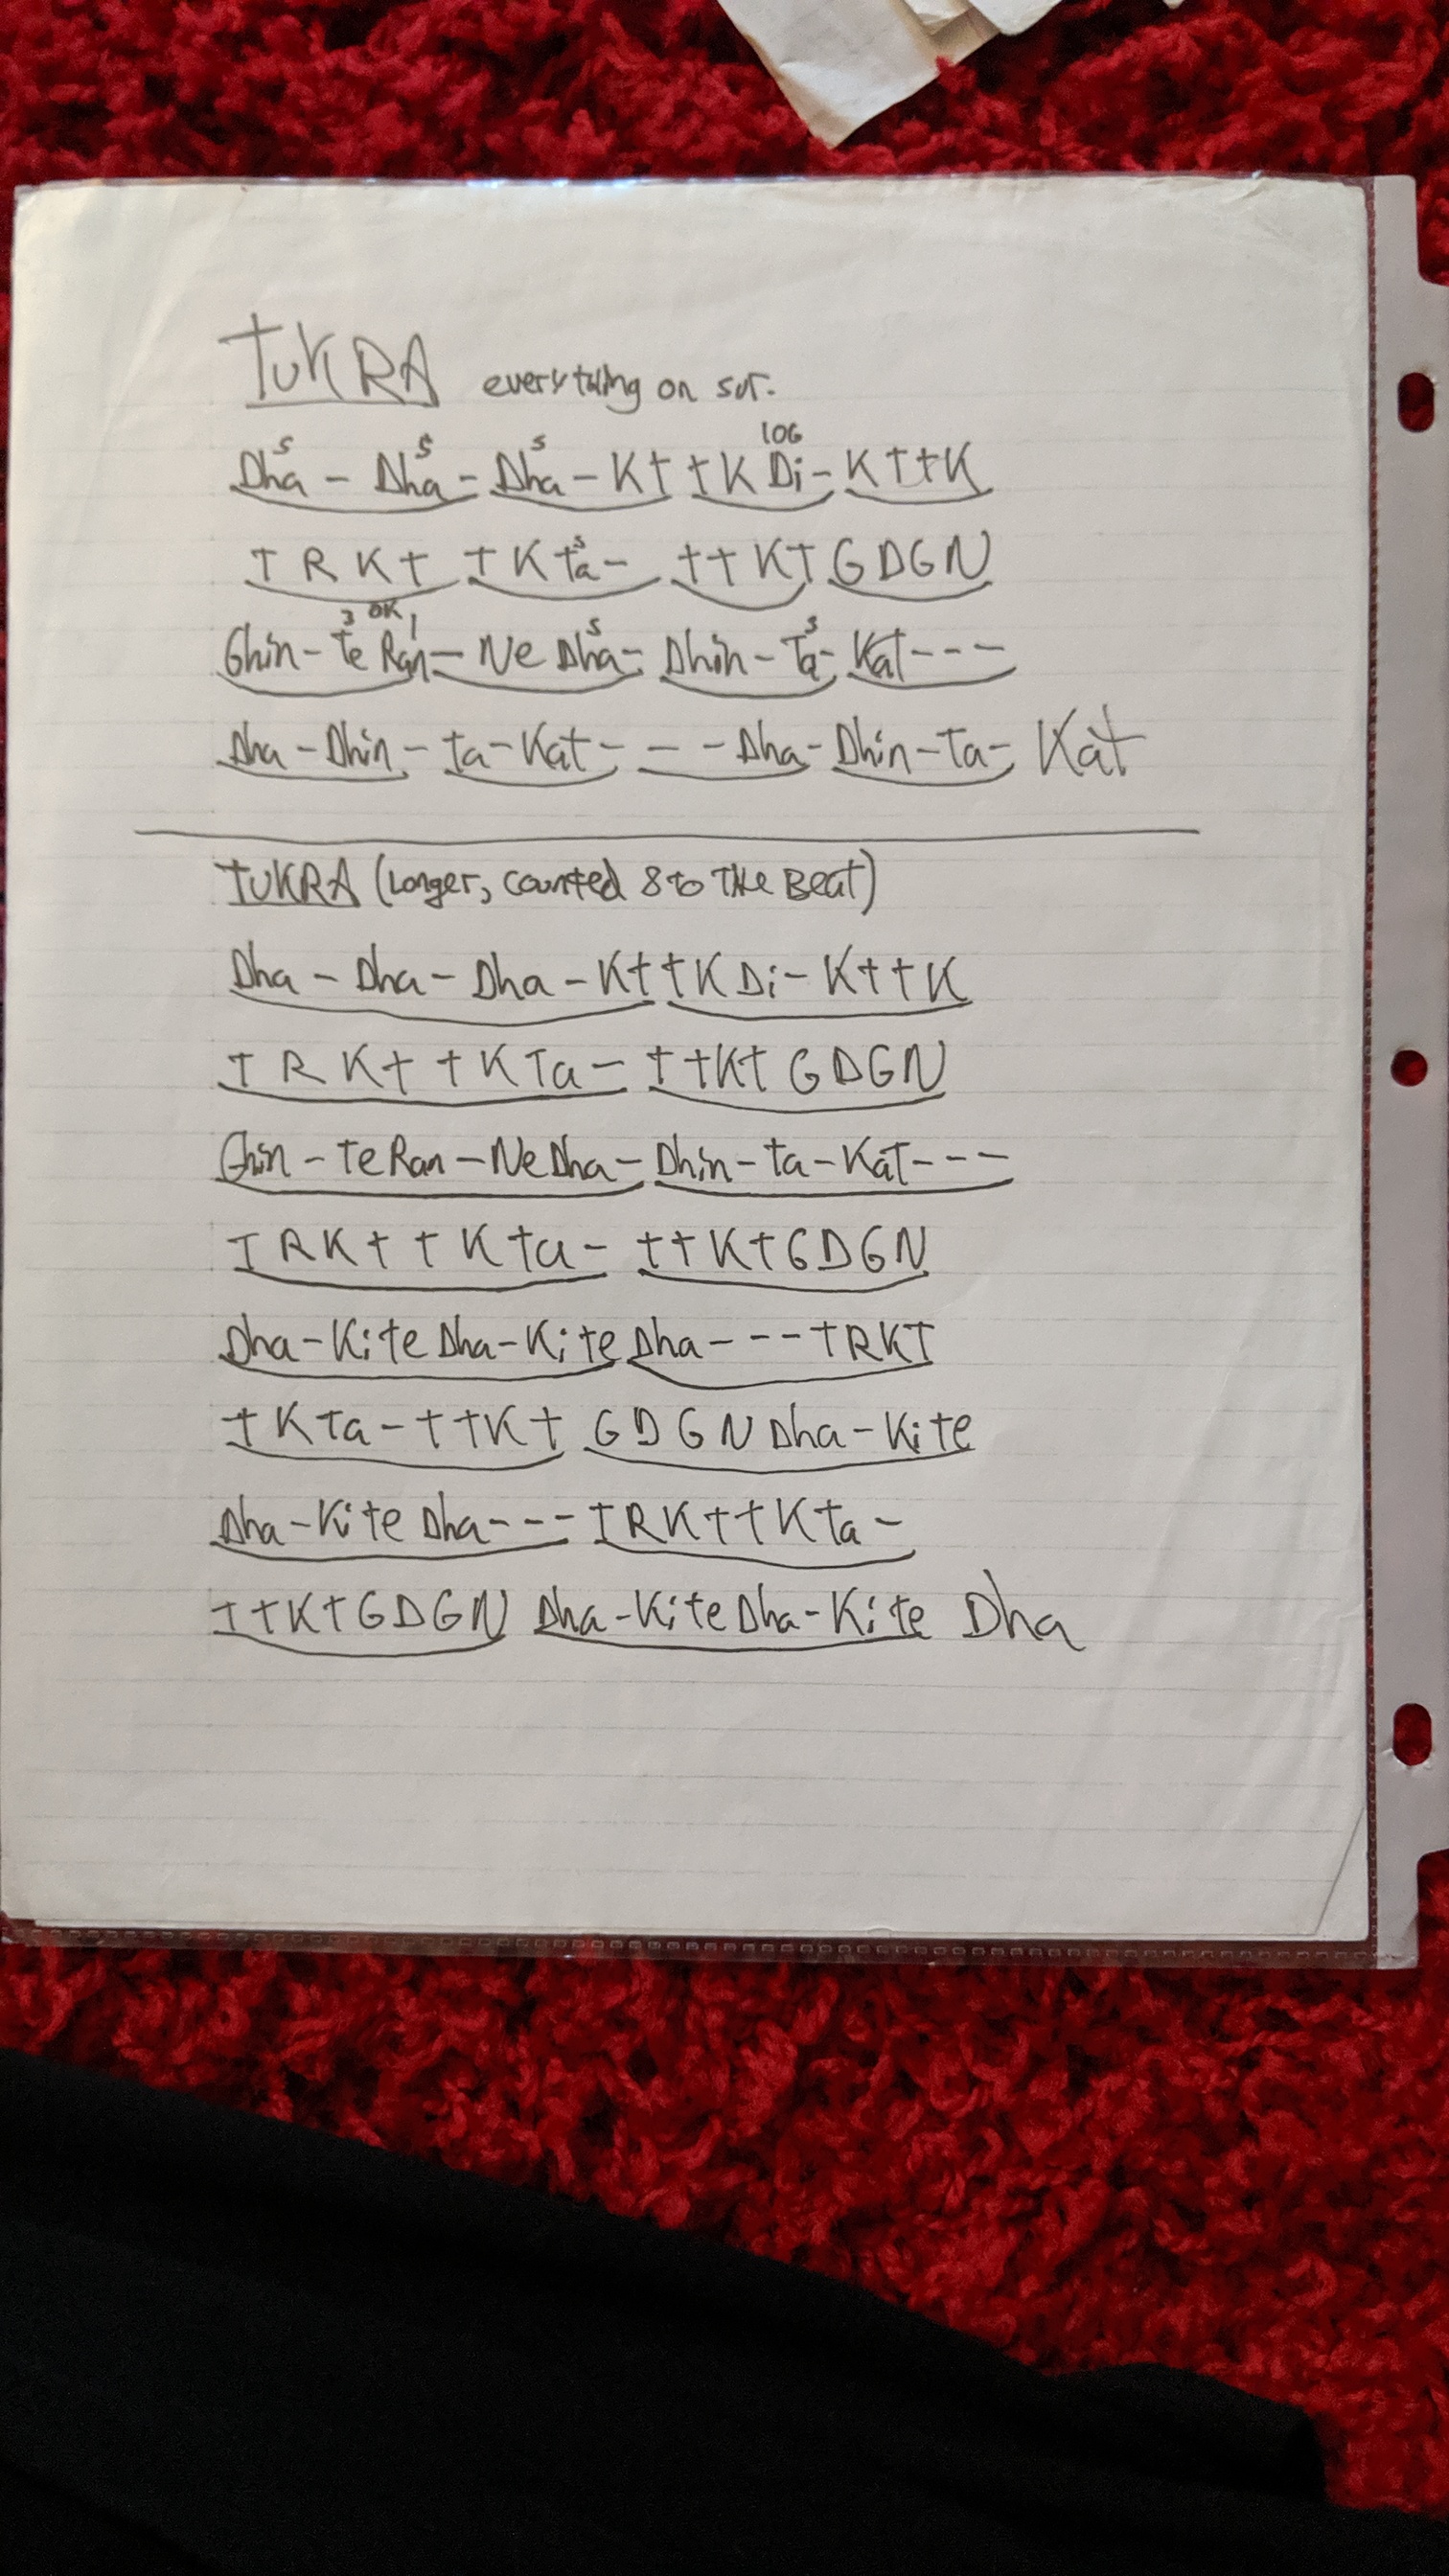 TUKRA everything on sur.
S S S 10G
Dha - Dha - Dha - Kt tK Di - K t t K
S
T R K t t K ta - t t K t G D G N
3 OK 1 S S
Ghin - te Ran - Ne Dha - Dhin - Ta - Kat - - -
Dha - Dhin - ta - Kat - - - Dha - Dhin - Ta - Kat
TUKRA (Longer, counted 8 to THe Beat)
Dha - Dha - Dha - Kt tK Di - K t t K
T R K t t K Ta - t t K t G D G N
Ghin - te Ran - Ne Dha - Dhin - ta - Kat - - -
T R K t t K ta - t t K t G D G N
Dha - Kite Dha - Kite Dha - - - T R K T
t K Ta - t t K t G D G N Dha - Kite
Dha - Kite Dha - - - T R K t t K ta -
T t K t G D G N Dha - Kite Dha - Kite Dha